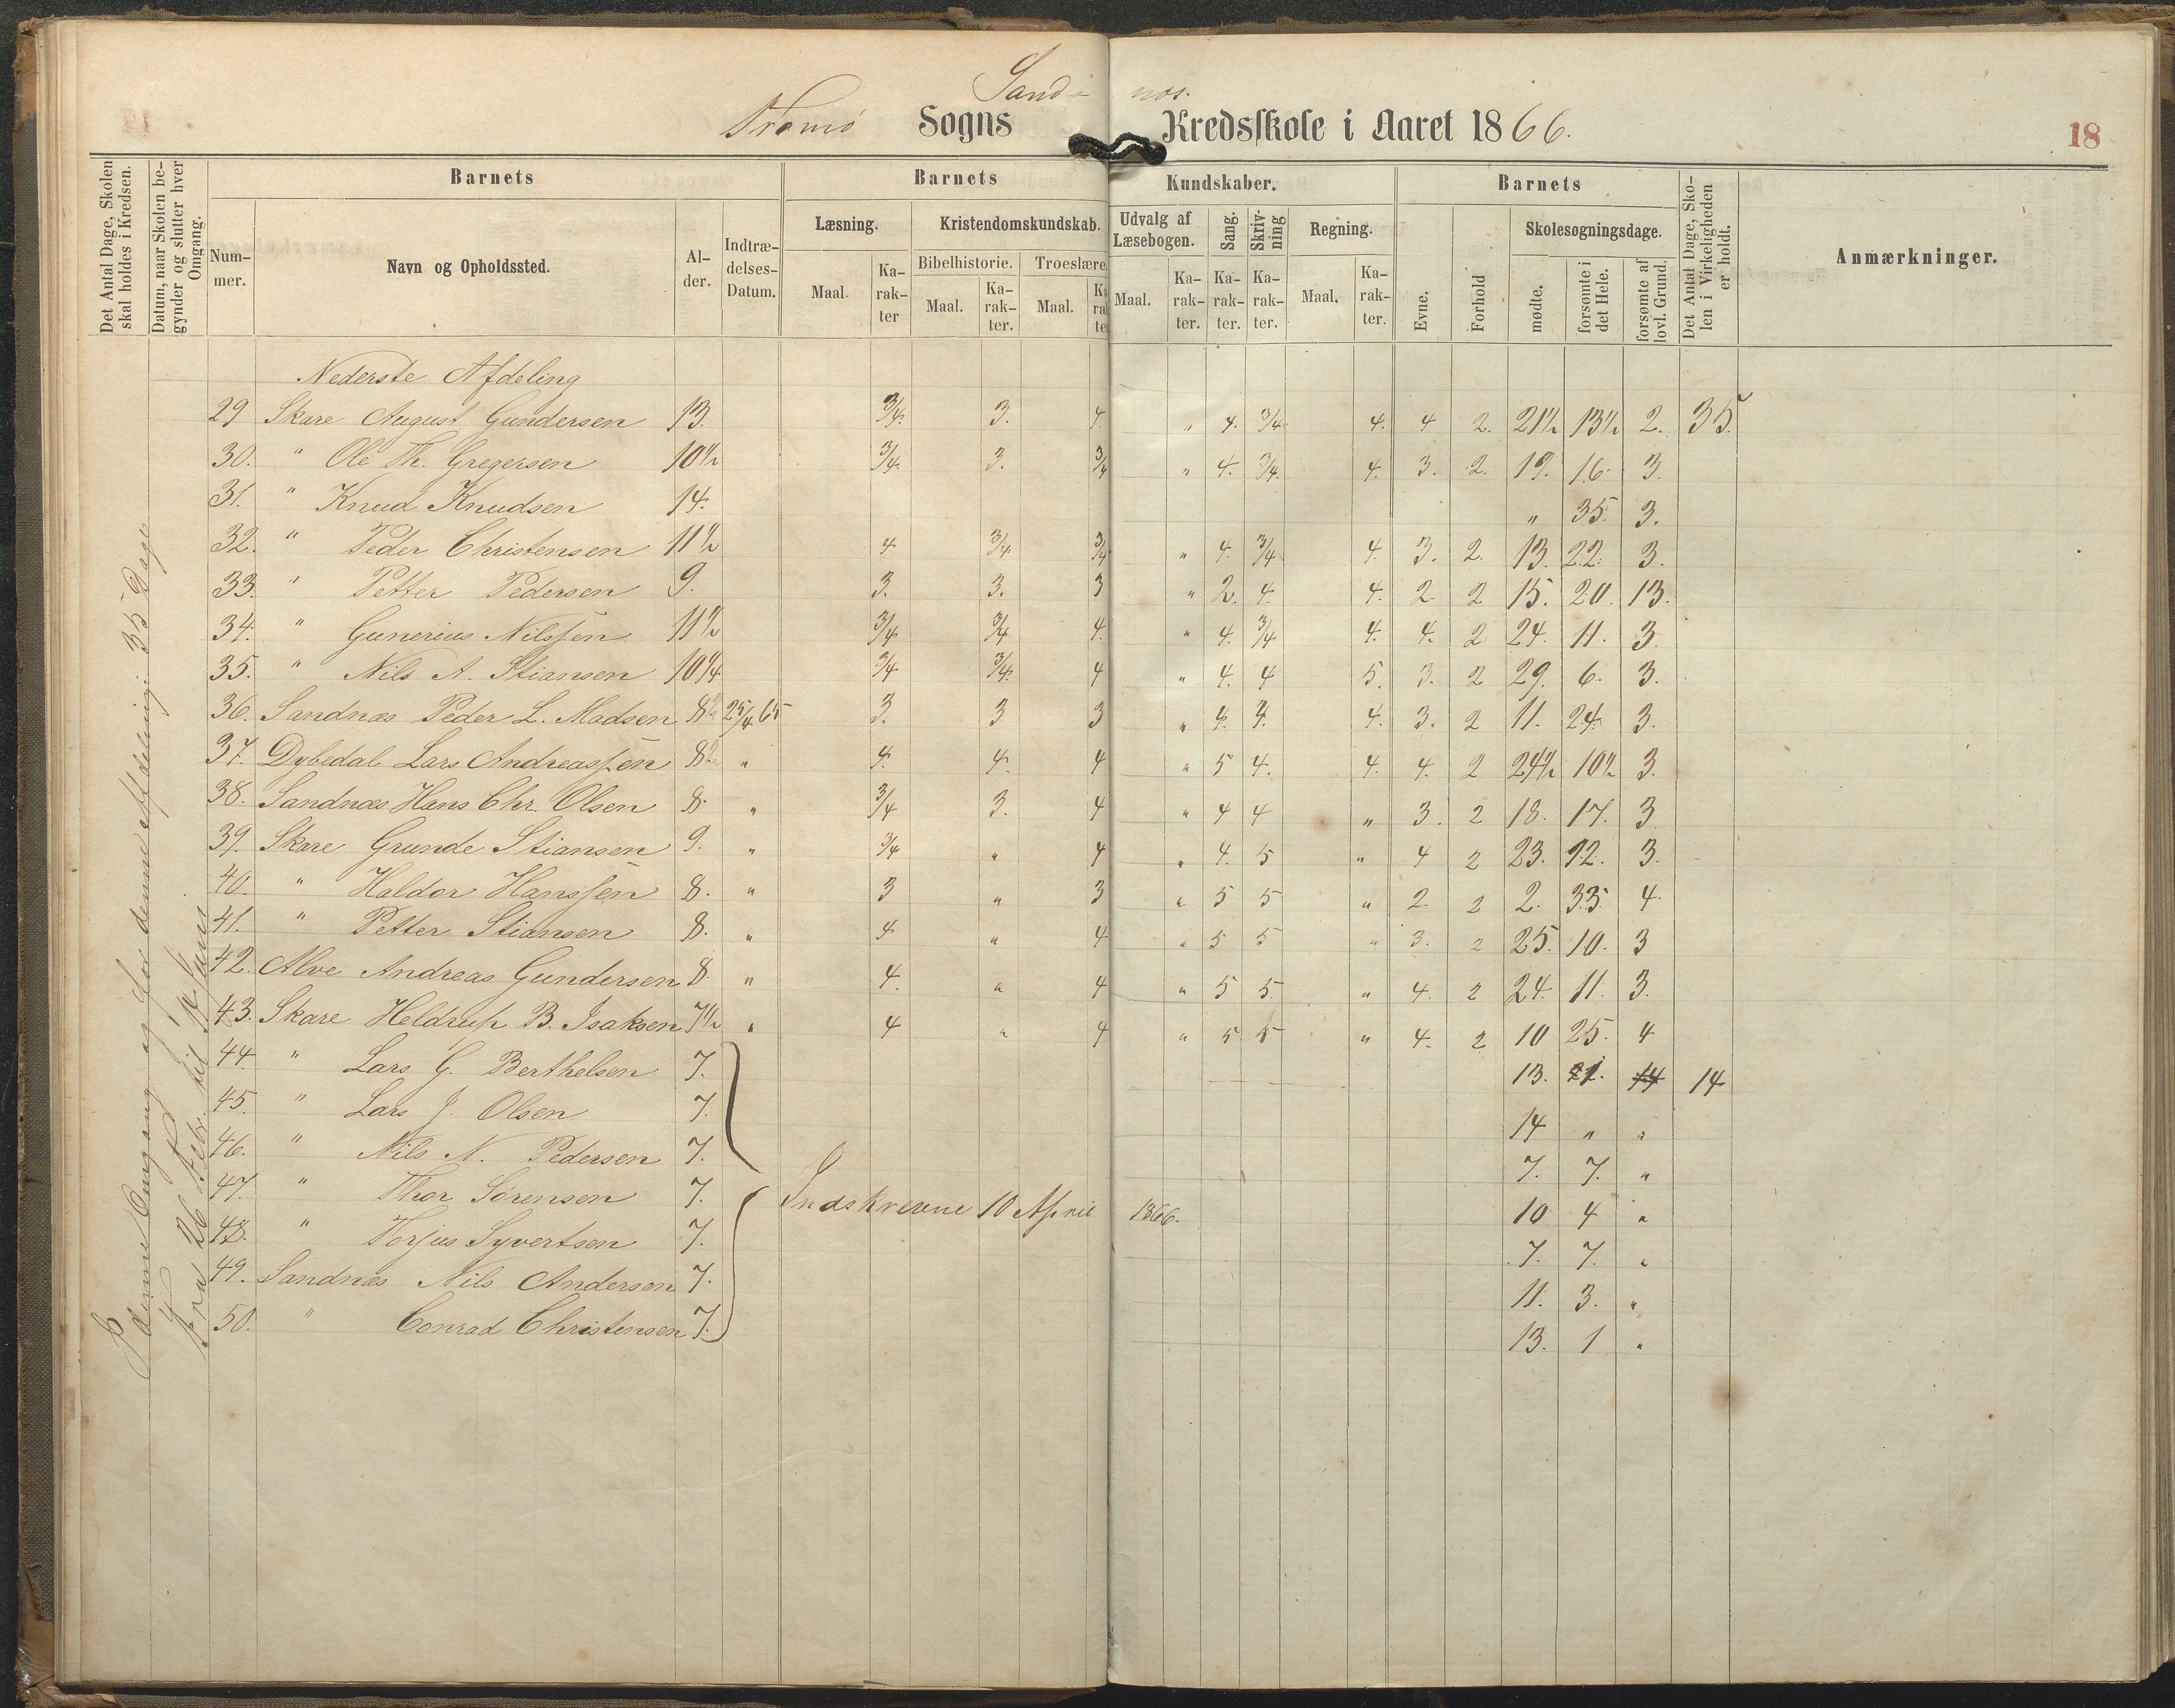 Sand-næs.
Tromø Sogns Kredsskole i Aaret 1866.
18
Det Antal Dage, Skolen skal holdes i Kredsen.
Datum, naar Skolen begynder og slutter hver Omgang.
Barnets
Nummer.
Navn og Opholdssted.
Alder.
Indtrædelses-Datum.
Barnets Kundskaber.
Læsning.
Maal.
Karakter
Kristendomskundskab.
Bibelhistorie.
Maal.
Karakter.
Troeslære.
Maal.
Karakter
Udvalg af Læsebogen.
Maal.
Karakter.
Sang.
Karakter.
Skrivning
Karakter.
Regning.
Maal.
Karakter.
Barnets
Evne.
Forhold
Skolesøgningsdage.
mødte.
forsømte i det Hele.
forsømte af lovl. Grund.
Det Antal Dage, Skolen i Virkeligheden er holdt.
Anmærkninger.
denne Omgang og for denne Afdeling: 35 Dage
Fra 26 Febr. til
Nederste Afdeling
29 Skare August Gundersen 13. 3/4. 3. 4 " 4. 3/4 4. 4 2. 21½ 13½ 2. 35.
30. " Ole Th. Gregersen 10½ 3/4. 3. 3/4 " 4. 3/4. 4. 3. 2. 19. 16. 3.
31. " Knud Knudsen 14. " 35. 3.
32. " Peder Christensen 11½ 4 3/4 3/4 " 4. 3/4 4. 3. 2. 13. 22. 3.
33. " Petter Pedersen 9. 3. 3. 3 " 2. 4. 4. 2. 2 15. 20. 13.
34. " Gunerius Nilssen 11½ 3/4 3/4 4. " 4. 3/4 4. 4. 2 24. 11. 3.
35. " Nils A. Stiansen 10¼ 3/4 3/4. 4 " 4. 4 5. 3. 2 29. 6. 3.
36. Sandnæs Peder L. Madsen 8½ 25/4 65 3. 3 3 " 4. 4. 4. 3. 2 11. 24. 3.
37. Dybedal Lars Andreassen 8½ " 4. 4. 4 " 5 4. 4. 4. 2 24½ 10½ 3.
38. Sandnæs Hans Chr. Olsen 8. " 3/4 3. 4 " 4 4 " 3. 2 18. 17. 3
39. Skare Grunde Stiansen 9. " 3/4 " 4 " 4. 5 " 4 2 23. 12. 3.
40. " Haldor Hanssen 8. " 3 " 3 " 5 5 " 2. 2 2. 33. 4.
41. " Petter Stiansen 8. " 4 " 4 " 5 5 " 3. 2 25. 10. 3
42. Alve Andreas Gundersen 8. " 4. " 4 " 5 5. " 4. 2 24. 11. 3.
43. Skare Heldrup B. Isaksen 7½ " 4 " 4 " 5 5 " 4. 2 10 25. 4
44. " Lars G. Berthelsen 7. 13. 1. 14 14
45. " Lars J. Olsen 7. 14 " "
46. " Nils N. Pedersen 7. 7. 7. "
47. " Thor Sørensen 7. 10 4 "
Indskrevne 10 April 1866.
48. " Torjus Syvertsen 7. 7. 7. "
49. Sandnæs Nils Andersen 7. 11. 3. "
50. " Conrad Christensen 7. 13. 1 "